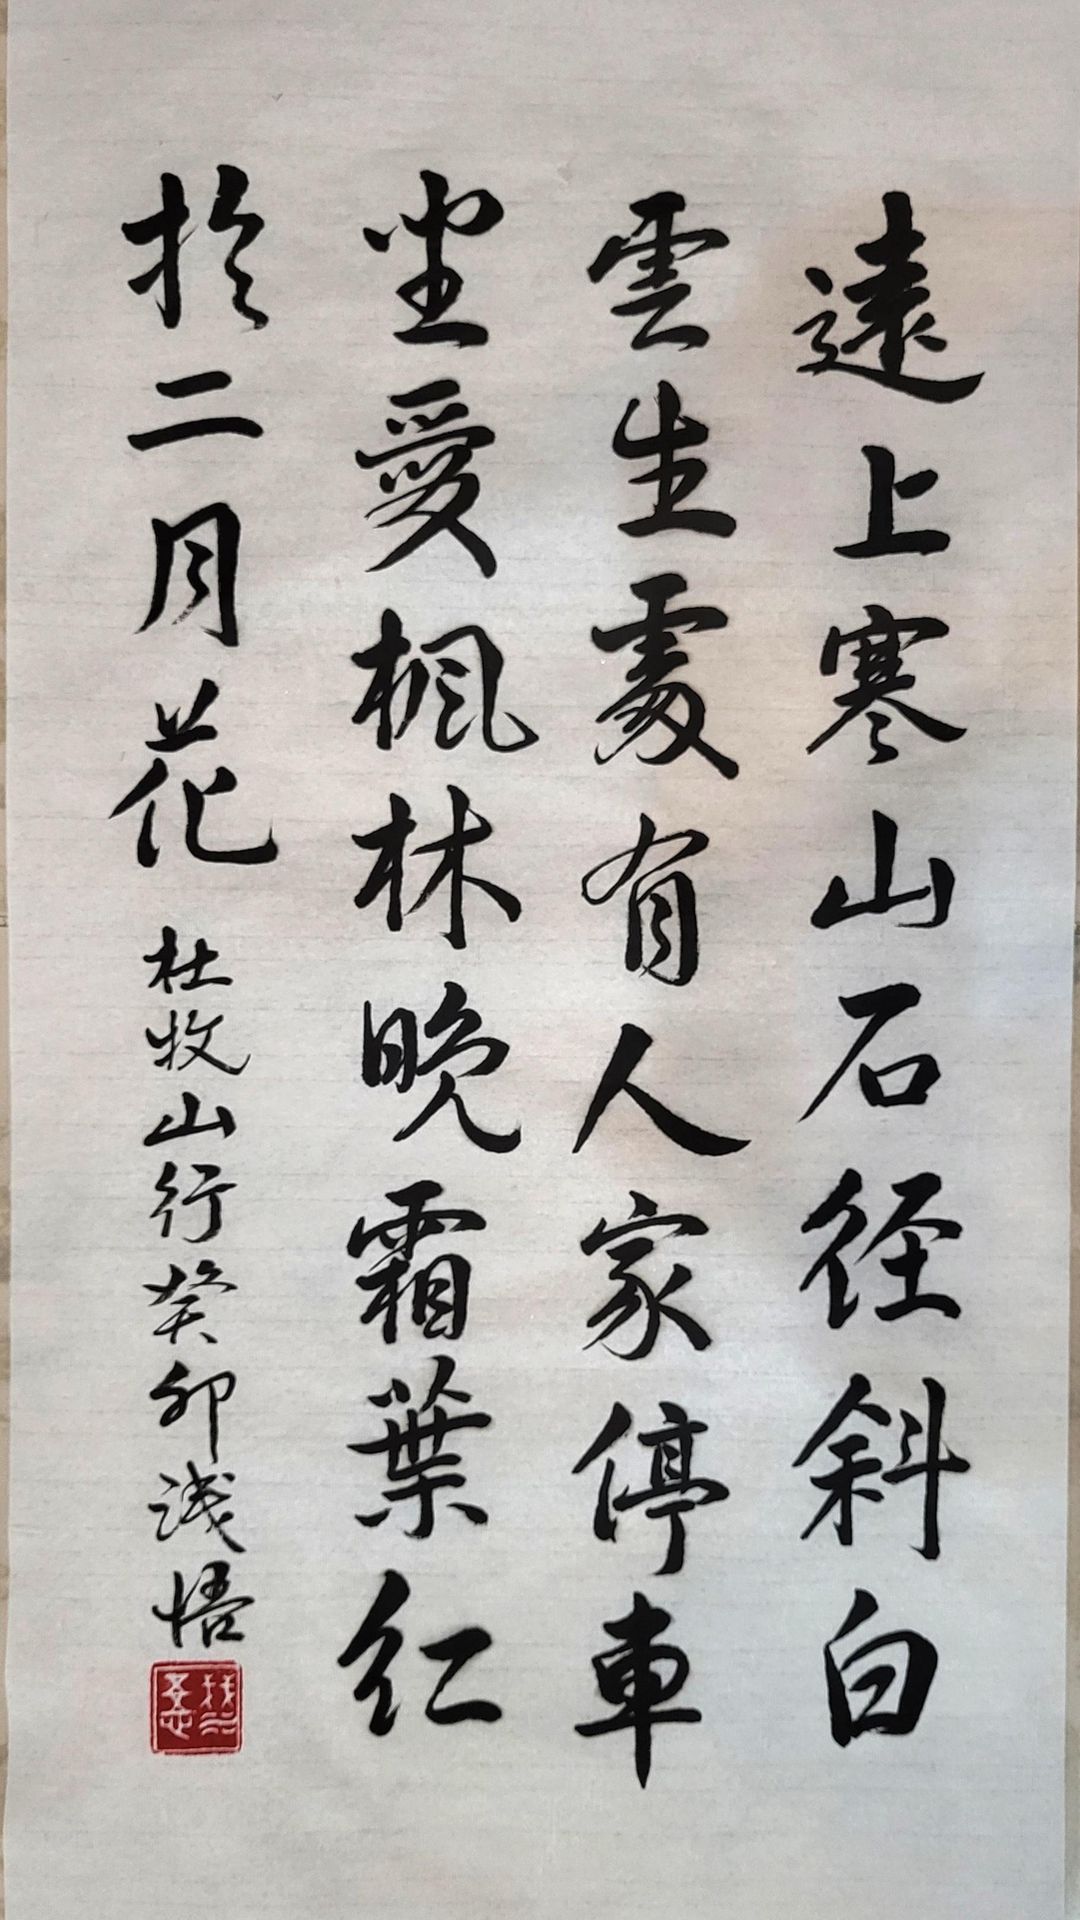 遠上寒山石径斜白
雲生處有人家停車
坐愛楓林晚霜葉紅
於二月花
杜牧山行癸卯浅悟